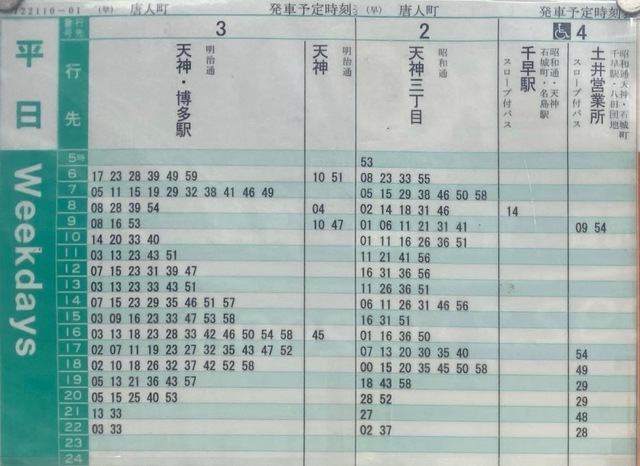 122110-01 (早) 唐人町 発車予定時刻 (早) 唐人町 発車予定時刻
行先番号 3 2 4
平日
行先
天神・博多駅 明治通
天神 明治通
天神三丁目 昭和通
千早駅 昭和通・天神 石城町・名島駅 スロープ付バス
土井営業所 昭和通天神・石城町 千早駅・八田団地 スロープ付バス
Weekdays
5時 53
6 17 23 28 39 49 59 10 51 08 23 33 55
7 05 11 15 19 29 32 38 41 46 49 05 15 29 38 46 50 58
8 08 28 39 54 04 02 14 18 31 46 14
9 08 16 53 10 47 01 06 11 21 31 41 09 54
10 14 20 33 40 01 11 16 26 36 51
11 03 13 23 43 51 11 21 41 56
12 07 15 23 31 39 47 16 31 36 56
13 03 13 23 33 43 51 11 26 36 51
14 07 15 23 29 35 46 51 57 06 11 26 31 46 56
15 03 09 16 23 33 47 53 58 16 31 51
16 03 13 18 23 28 33 42 46 50 54 58 45 01 16 36 50
17 02 07 11 19 23 27 32 35 43 47 52 07 13 20 30 35 40 54
18 02 10 18 26 32 37 42 52 58 00 15 20 35 45 50 58 49
19 05 13 21 36 43 57 18 43 58 29
20 05 15 25 40 53 28 52 29
21 13 33 27 48
22 03 33 02 37 28
23
24